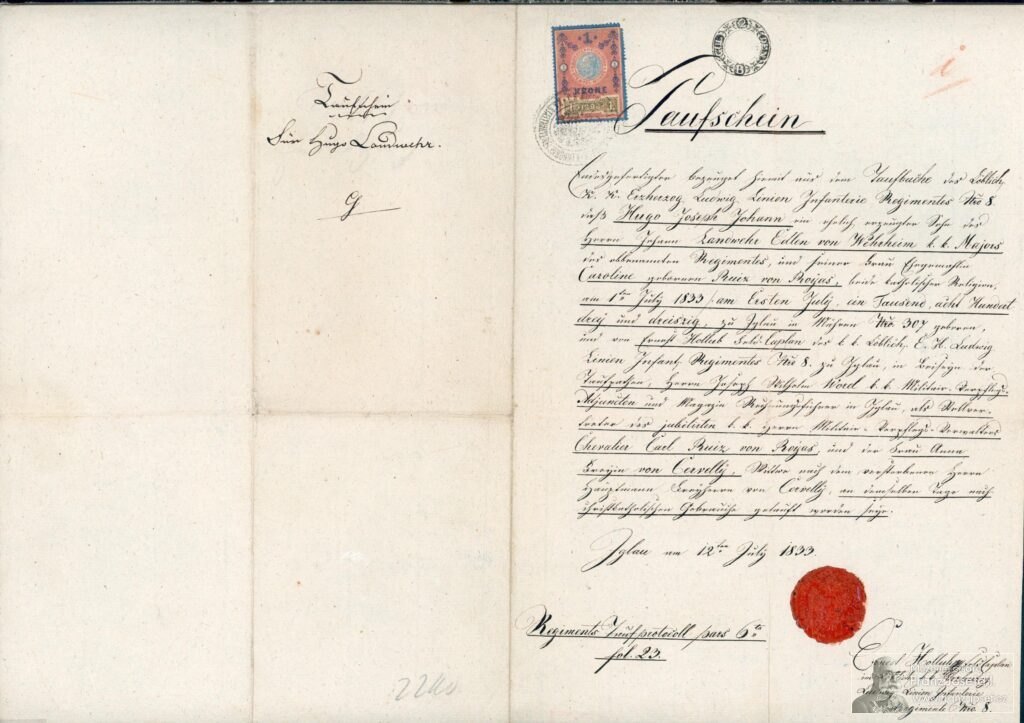 Taufschein
Für Hugo Landwehr.
1
KRONE
Taufschein
Endesgefertigter bezeuget hiemit aus dem Taufbuche des Löblich.
K. K. Erzherzog Ludwig Linien Infanterie Regimentes Nro 8.
daß Hugo Joseph Johann ein ehelich erzeugter Sohn des
Herrn Johann Landwehr Edlen von Wehrheim k. k. Majors
des obbenannten Regimentes, und seiner Frau Ehegemahlin
Caroline gebornen Ruiz von Roxas, beide katholischer Religion,
am 1ten July 1833 /: am Ersten July, ein Tausend, acht Hundert
drey und dreiszig, zu Iglau in Mähren Nro. 307 geboren,
und von Ernest Hollub Feld-Caplan des k. k. Löblich. E. H. Ludwig
Linien Infant. Regimentes Nro 8. zu Iglau, in Beiseyn der
Taufpathen, Herrn Joseph Wilhelm Word k. k. Militair-Verpflegs-
Adjuncten und Magazin Rechnungsführer in Iglau, als Stellver-
treter des jubilirten k. k. Herrn Militair-Verpflegs-Verwalters
Chevalier Carl Ruiz von Roxas, und der Frau Anna
Freyin von Cervelly, Witwe nach dem verstorbenen Herrn
Hauptmann Freyherrn von Cervelly, an demselben Tage nach
christkatholischen Gebrauche getauft worden seye.
Iglau am 12ten July 1833.
Regiments Taufprotocoll pars 6ta
fol. 23.
Ernest Hollub Feldcaplan
Ludwig Linien Infanterie
Regimente Nro 8.